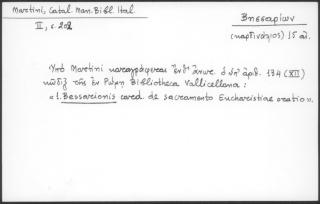 Martini, Catal. Man. Bibl. Ital.
II, σ. 202
Βησσαρίων
(καρδινάλιος) 15 αἰ.
Ὑπὸ Martini καταγράφεται ἐν ὁ ὑπ' ἀριθ. 134 (XII)
κῶδιξ τῆς ἐν Ρώμῃ Bibliotheca Vallicellana:
«1. Bessarionis card. de sacramento Eucharistiae oratio».